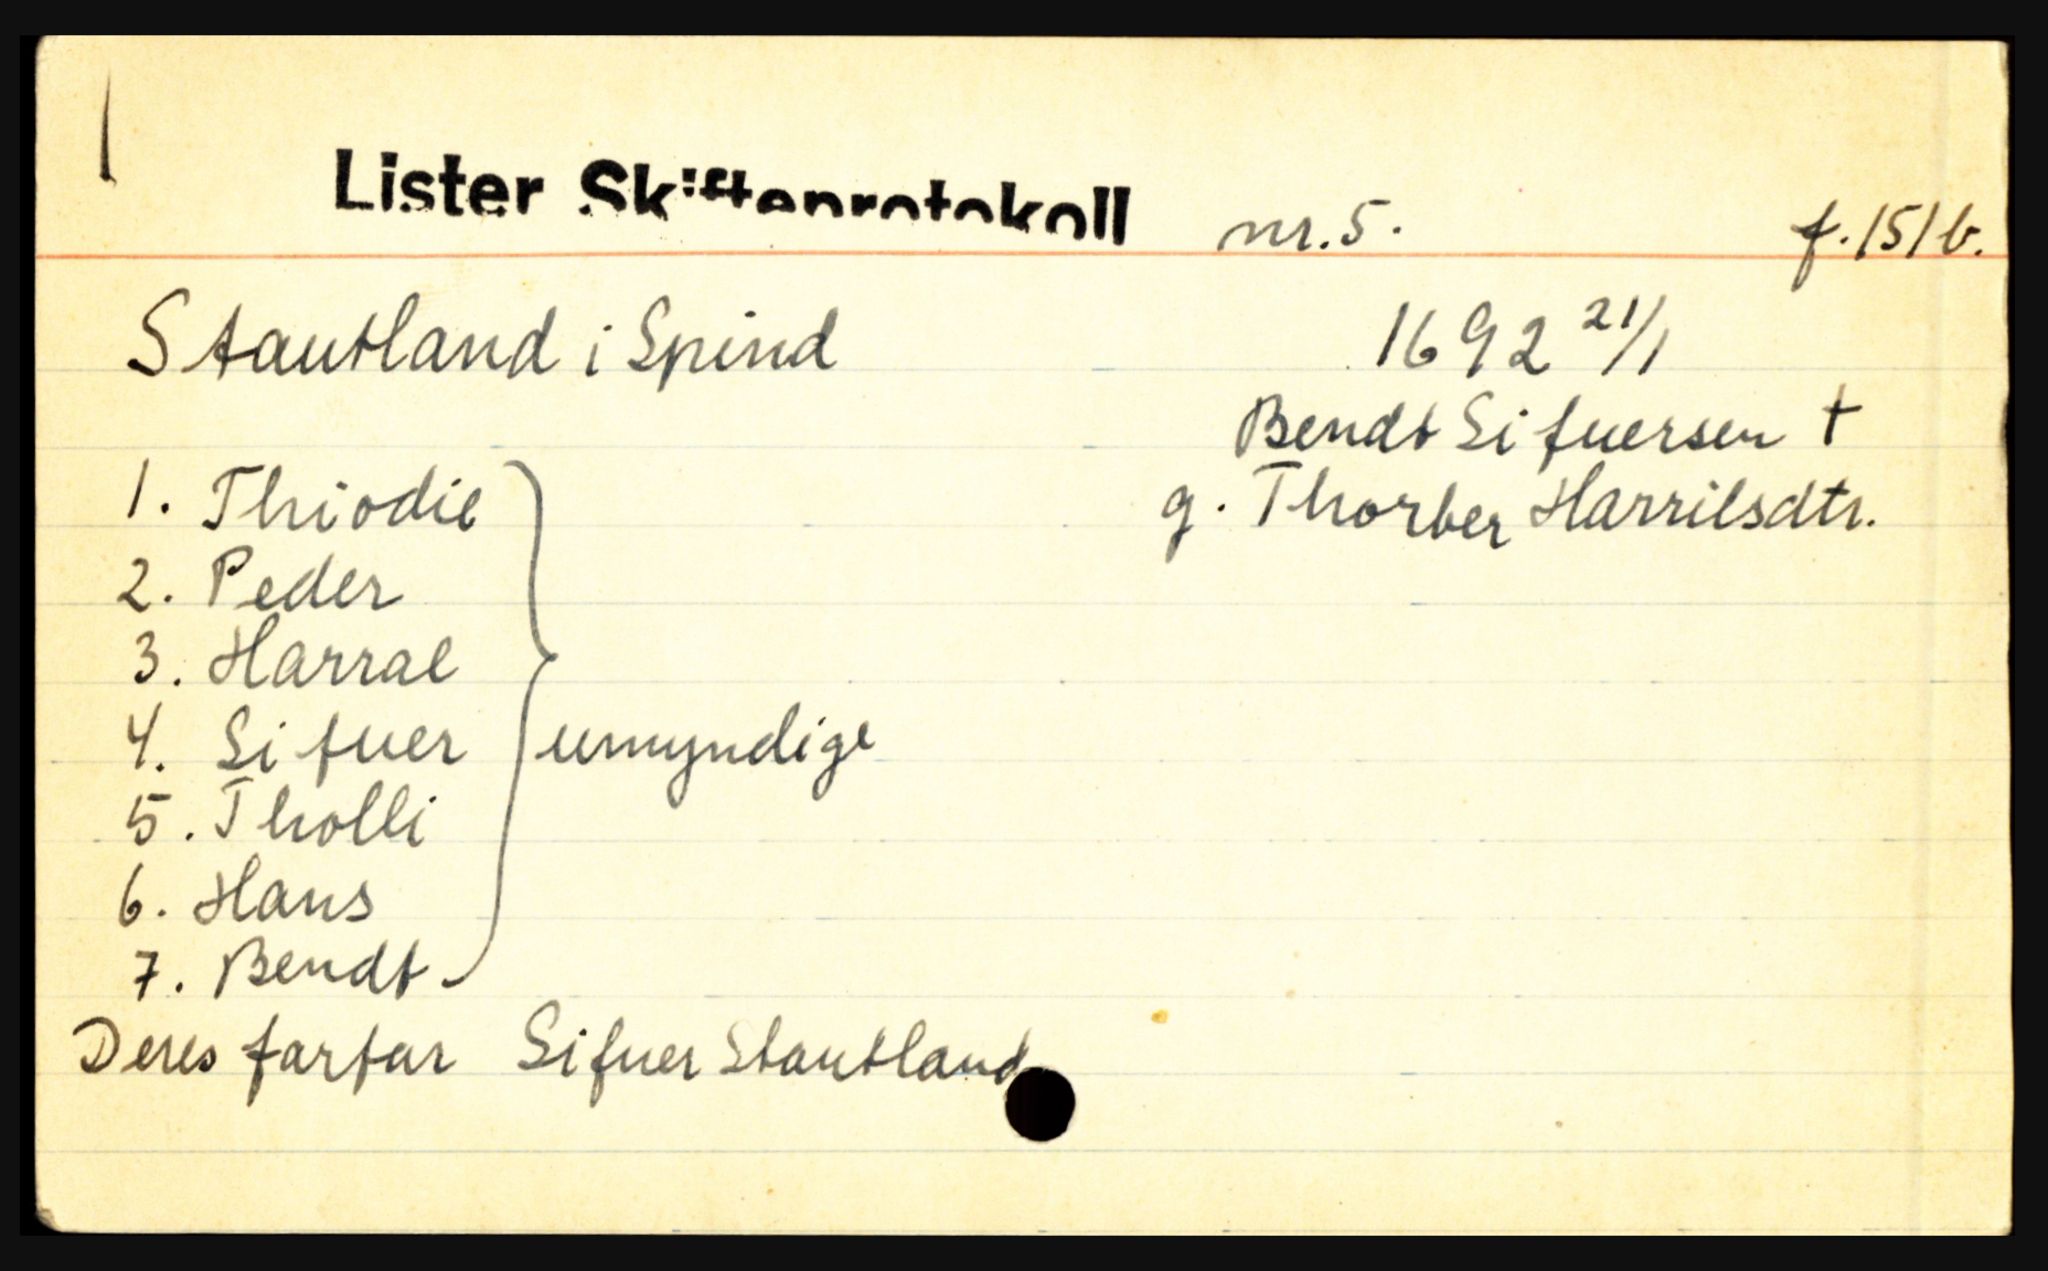 Lister Skifteprotokoll nr. 5. f. 151b.
Stautland i Spind 1692 21/1
Bendt Sifuersen †
g. Thorber Harrilsdtr.
1. Thiodie
2. Peder
3. Harrae
4. Sifuer
5. Tholli
6. Hans
7. Bendt
umyndige
Deres farfar Sifuer Stautland